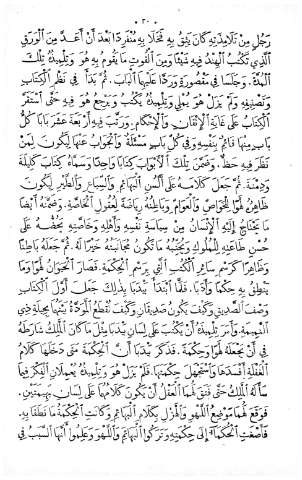 ٢٠
رجل من تلامذته كان يثق به فخلا به منفردا بعد أن أعد من الورق
الذي تكتب الهند فيه شيئا ومن القوت ما يقوم به هو وتلميذه تلك
المدّة. وجلسا في مقصورة وردّا عليهما الباب. ثم بدأ في نظر الكتاب
وتصنيفه ولم يزل هو يملي وتلميذه يكتب ويرجع هو فيه حتى استقر
الكتاب على غاية الإتقان والإحكام. ورتب فيه أربعة عشر بابا كل
باب منها قائم بنفسه وفي كل باب مسئلة والجواب عنها ليكون لمن
نظر فيه حظ. وضمن تلك الأبواب كتابا واحدا وسماه كتاب كليلة
ودمنة. ثم جعل كلامه على ألسن البهائم والسباع والطير ليكون
ظاهره لهوا للخواص والعوام وباطنه رياضة لعقول الخاصة. وضمنه أيضا
ما يحتاج إليه الإنسان من سياسة نفسه وأهله وخاصته
حسن طاعته للملوك ويجنبه ما تكون مجانبته خيرا له. ثم جعله باطنا
وظاهرا كرسم سائر الكتب التي برسم الحكمة. فصار الحيوان لهوا وما
ينطق به حكما وأدبا. فلما ابتدأ بيدبا بذلك جعل أول الكتاب
وصف الصديق وكيف يكون صديقان وكيف تقطع المودة بينهما بحيلة ذي
النميمة وأمر تلميذه أن يكتب على لسان بيدبا مثل ما كان الملك شارطه
في أن يجعله لهوا وحكمة. فذكر بيدبا أن الحكمة متى دخلها كلام
النقلة أفسدها واستجهل حكمتها. فلم يزل هو وتلميذه يعملان الفكر فيما
سأله الملك حتى فتق لهما العقل أن يكون كلامهما على لسان بهيمتين.
فوقع لهما موضع اللهو والهزل بكلام البهائم وكانت الحكمة ما نطقا به.
فأصغت الحكماء إلى حكمه وتركوا البهائم واللهو وعلموا أنها السبب في